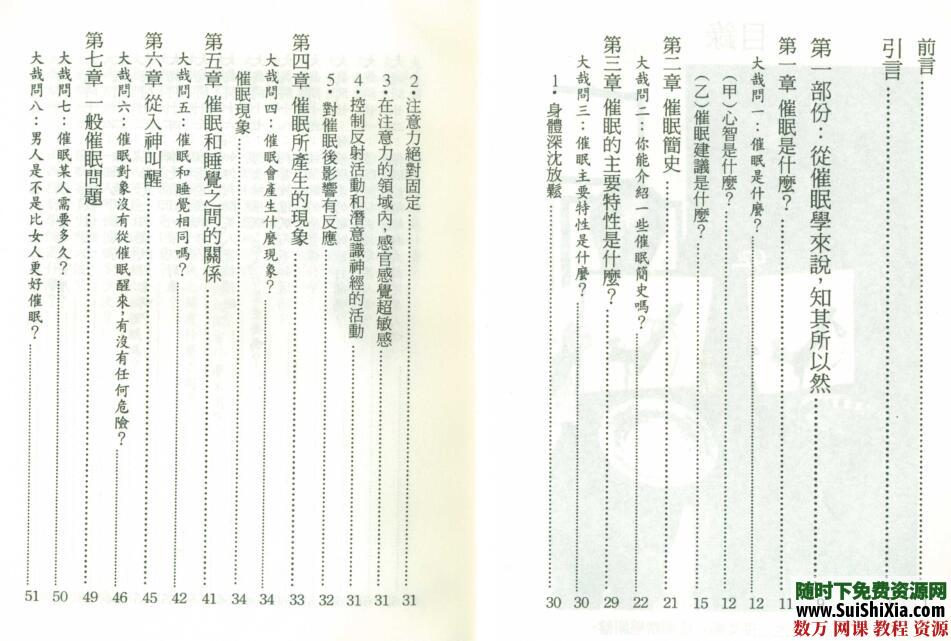 目錄
前言
引言
第一部份：從催眠學來說，知其所以然 9
第一章 催眠是什麼？ 11
大哉問一：催眠是什麼？ 12
（甲）心智是什麼？ 12
（乙）催眠建議是什麼？ 15
第二章 催眠簡史 21
大哉問二：你能介紹一些催眠簡史嗎？ 22
第三章 催眠的主要特性是什麼？ 29
大哉問三：催眠主要特性是什麼？ 30
1．身體深沈放鬆 30
2．注意力絕對固定 31
3．在注意力的領域內，感官感覺超敏感 31
4．控制反射活動和潛意識神經的活動 31
5．對催眠後影響有反應 32
第四章 催眠所產生的現象 33
大哉問四：催眠會產生什麼現象？ 34
催眠現象 34
第五章 催眠和睡覺之間的關係 41
大哉問五：催眠和睡覺相同嗎？ 42
第六章 從入神叫醒 45
大哉問六：催眠對象沒有從催眠醒來，有沒有任何危險？ 46
第七章 一般催眠問題 49
大哉問七：催眠某人需要多久？ 50
大哉問八：男人是不是比女人更好催眠？ 51
随时下免费资源网
www.SuiShiXia.com
数万 网课 教程 资源